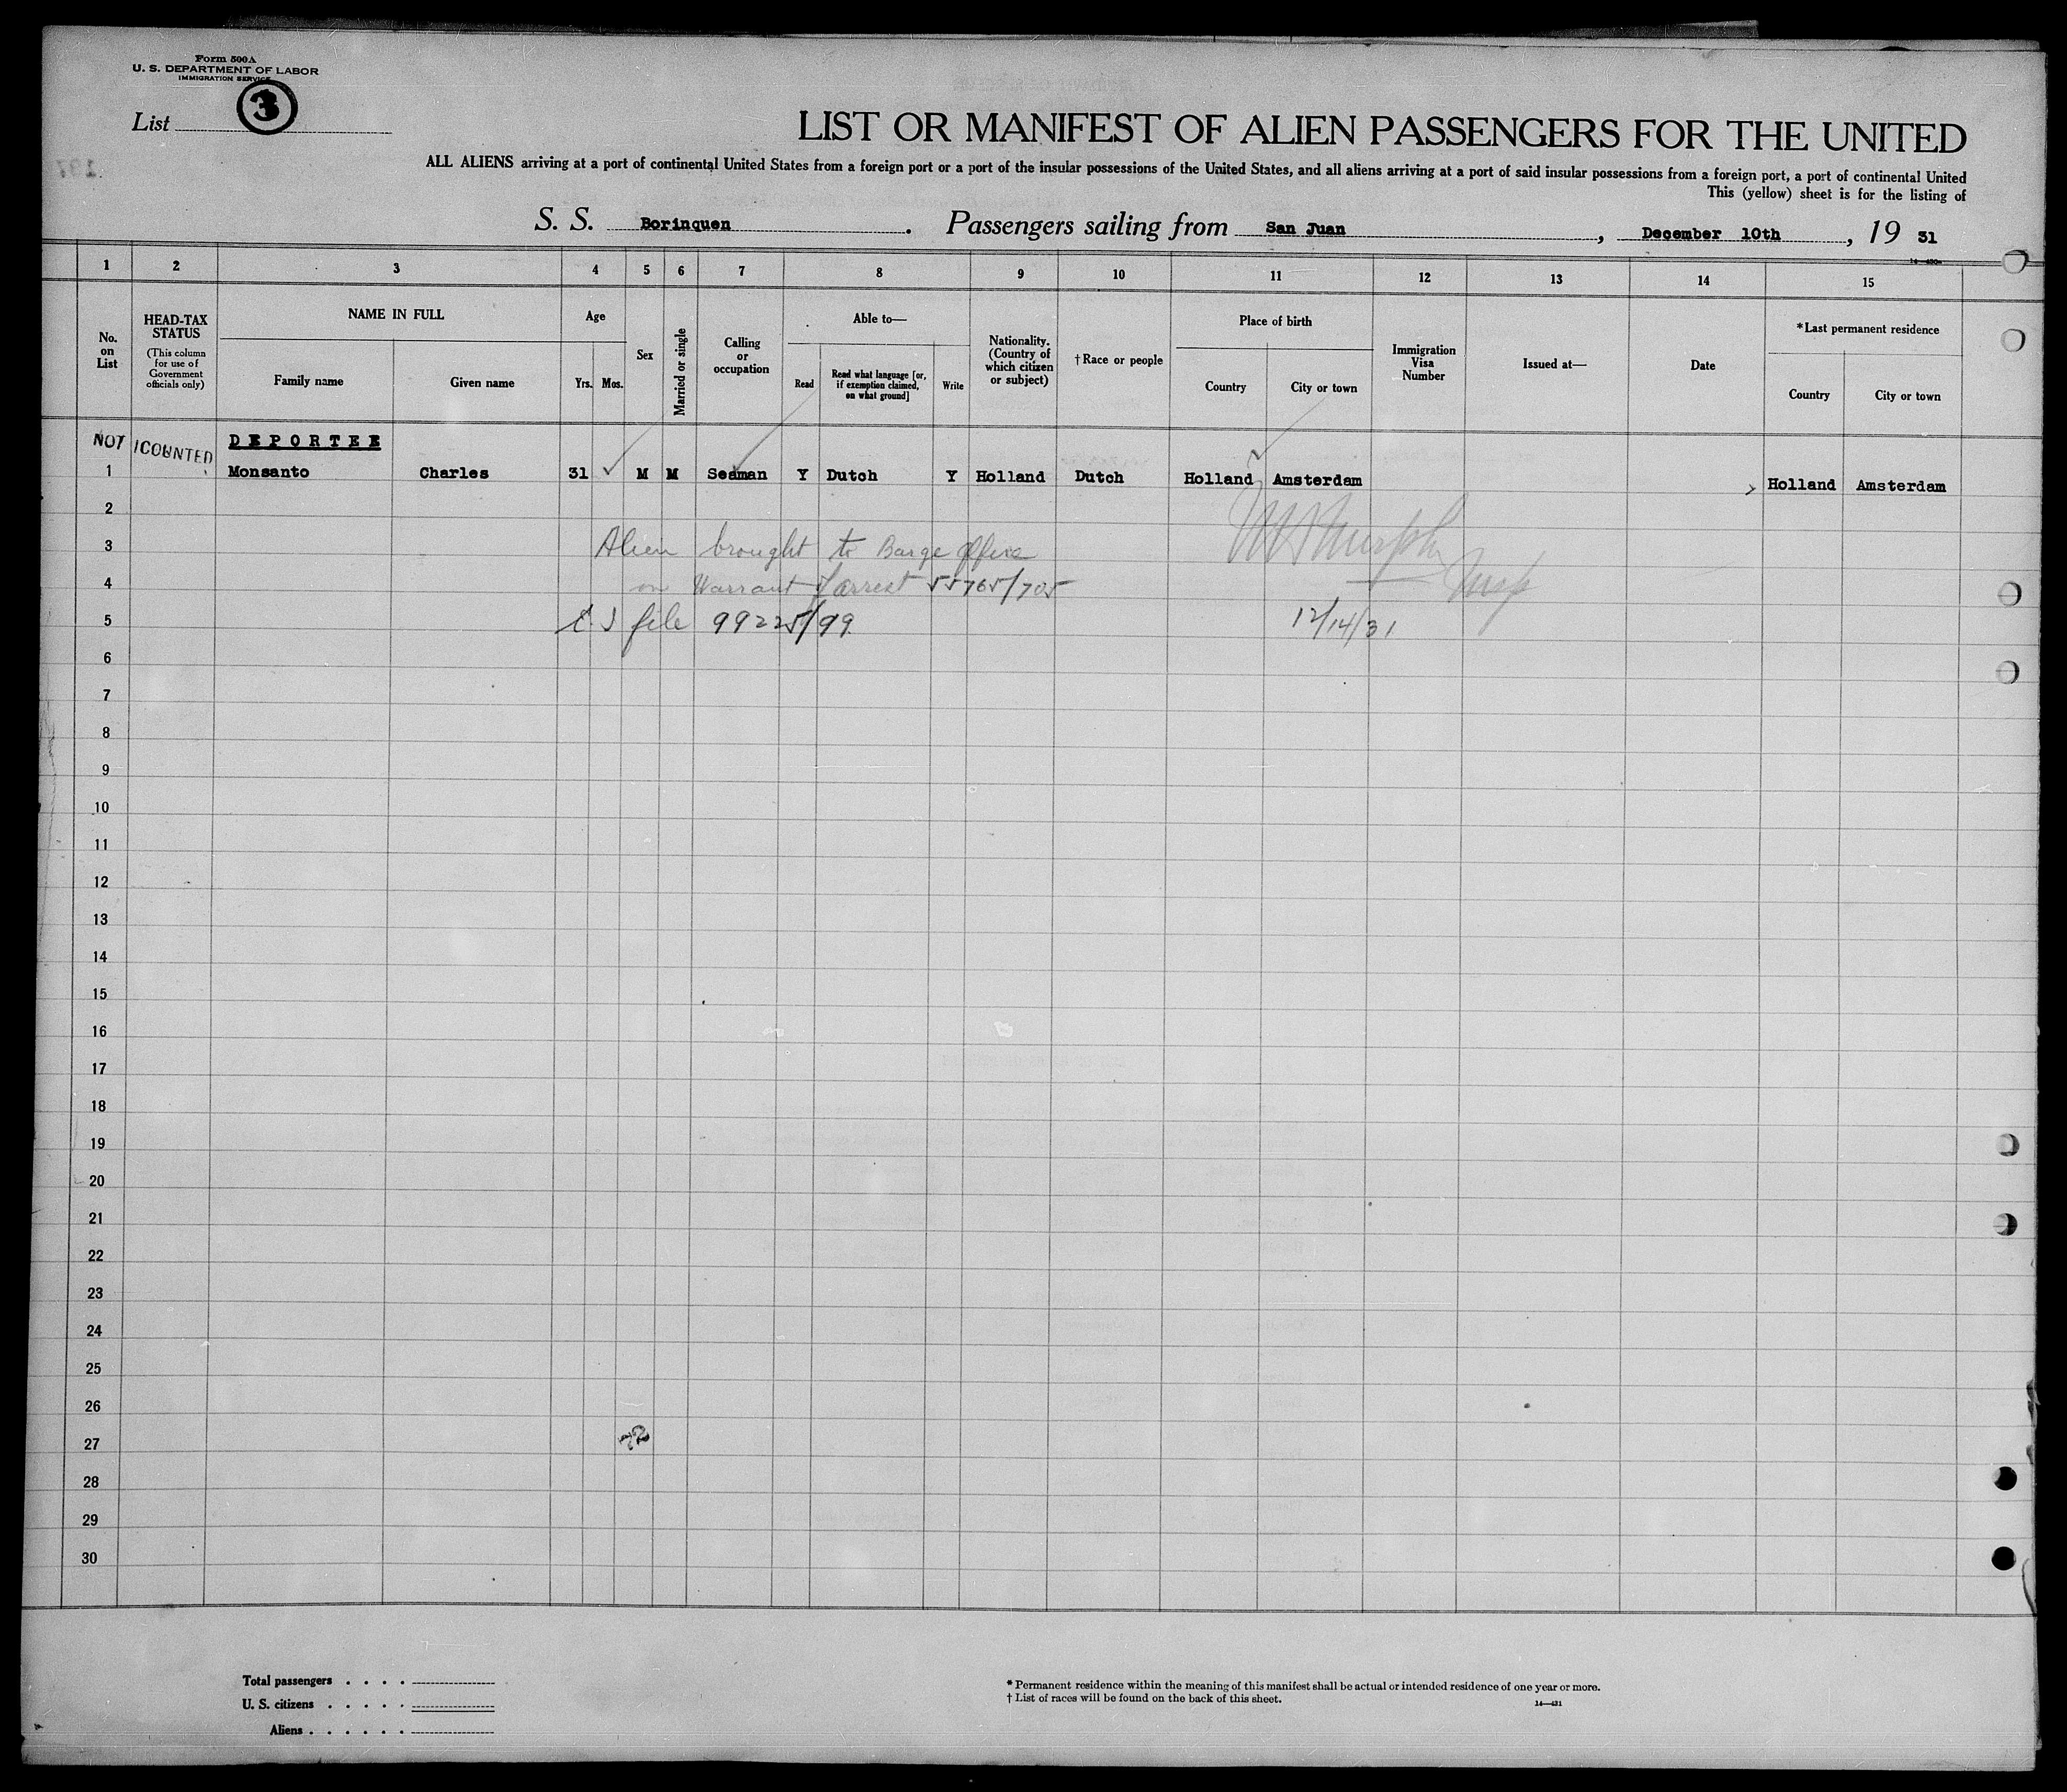 Form 500A
U. S. DEPARTMENT OF LABOR
IMMIGRATION SERVICE
List 3
LIST OR MANIFEST OF ALIEN PASSENGERS FOR THE UNITED
ALL ALIENS arriving at a port of continental United States from a foreign port or a port of the insular possessions of the United States, and all aliens arriving at a port of said insular possessions from a foreign port, a port of continental United
This (yellow) sheet is for the listing of
S. S. Borinquen. Passengers sailing from San Juan, December 10th, 19 31
1 2 3 4 5 6 7 8 9 10 11 12 13 14 15
No. on List
HEAD-TAX STATUS
(This column for use of Government officials only)
NAME IN FULL
Family name Given name
Age
Yrs. Mos.
Sex
Married or single
Calling or occupation
Able to—
Read
Read what language [or, if exemption claimed, on what ground]
Write
Nationality. (Country of which citizen or subject)
†Race or people
Place of birth
Country City or town
Immigration Visa Number
Issued at—
Date
*Last permanent residence
Country City or town
NOT COUNTED DEPORTEE
1 Monsanto Charles 31 M M Seaman Y Dutch Y Holland Dutch Holland Amsterdam Holland Amsterdam
2
3 Alien brought to Barge Office
4 on Warrant of arrest 55765/705
5 file 99225/99 12/14/31
6
7
8
9
10
11
12
13
14
15
16
17
18
19
20
21
22
23
24
25
26
27
28
29
30
Total passengers . . . .
U. S. citizens . . . . .
Aliens . . . . . .
* Permanent residence within the meaning of this manifest shall be actual or intended residence of one year or more.
† List of races will be found on the back of this sheet.
14—431